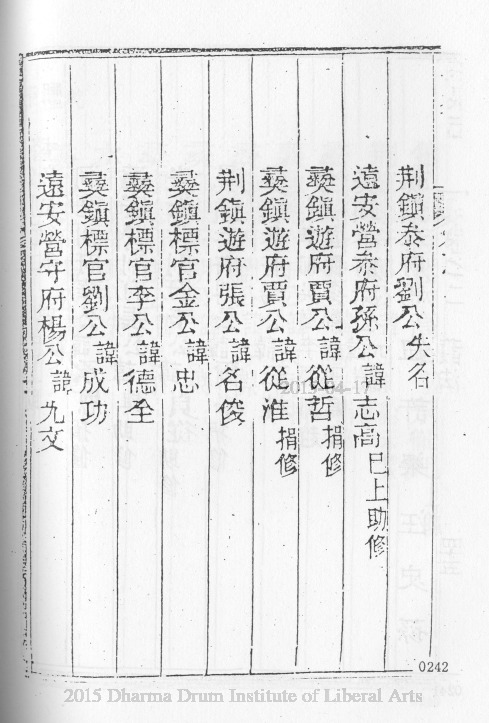 荆鎮叅府劉公失名
遠安營叅府孫公諱志高巳上助修
彝鎮遊府賈公諱從哲捐修
彝鎮遊府賈公諱從淮捐修
荆鎮遊府張公諱名俊
彝鎮標官金公諱忠
彝鎮標官李公諱德全
彝鎮標官劉公諱成功
遠安營守府楊公諱九文
0242
2015 Dharma Drum Institute of Liberal Arts